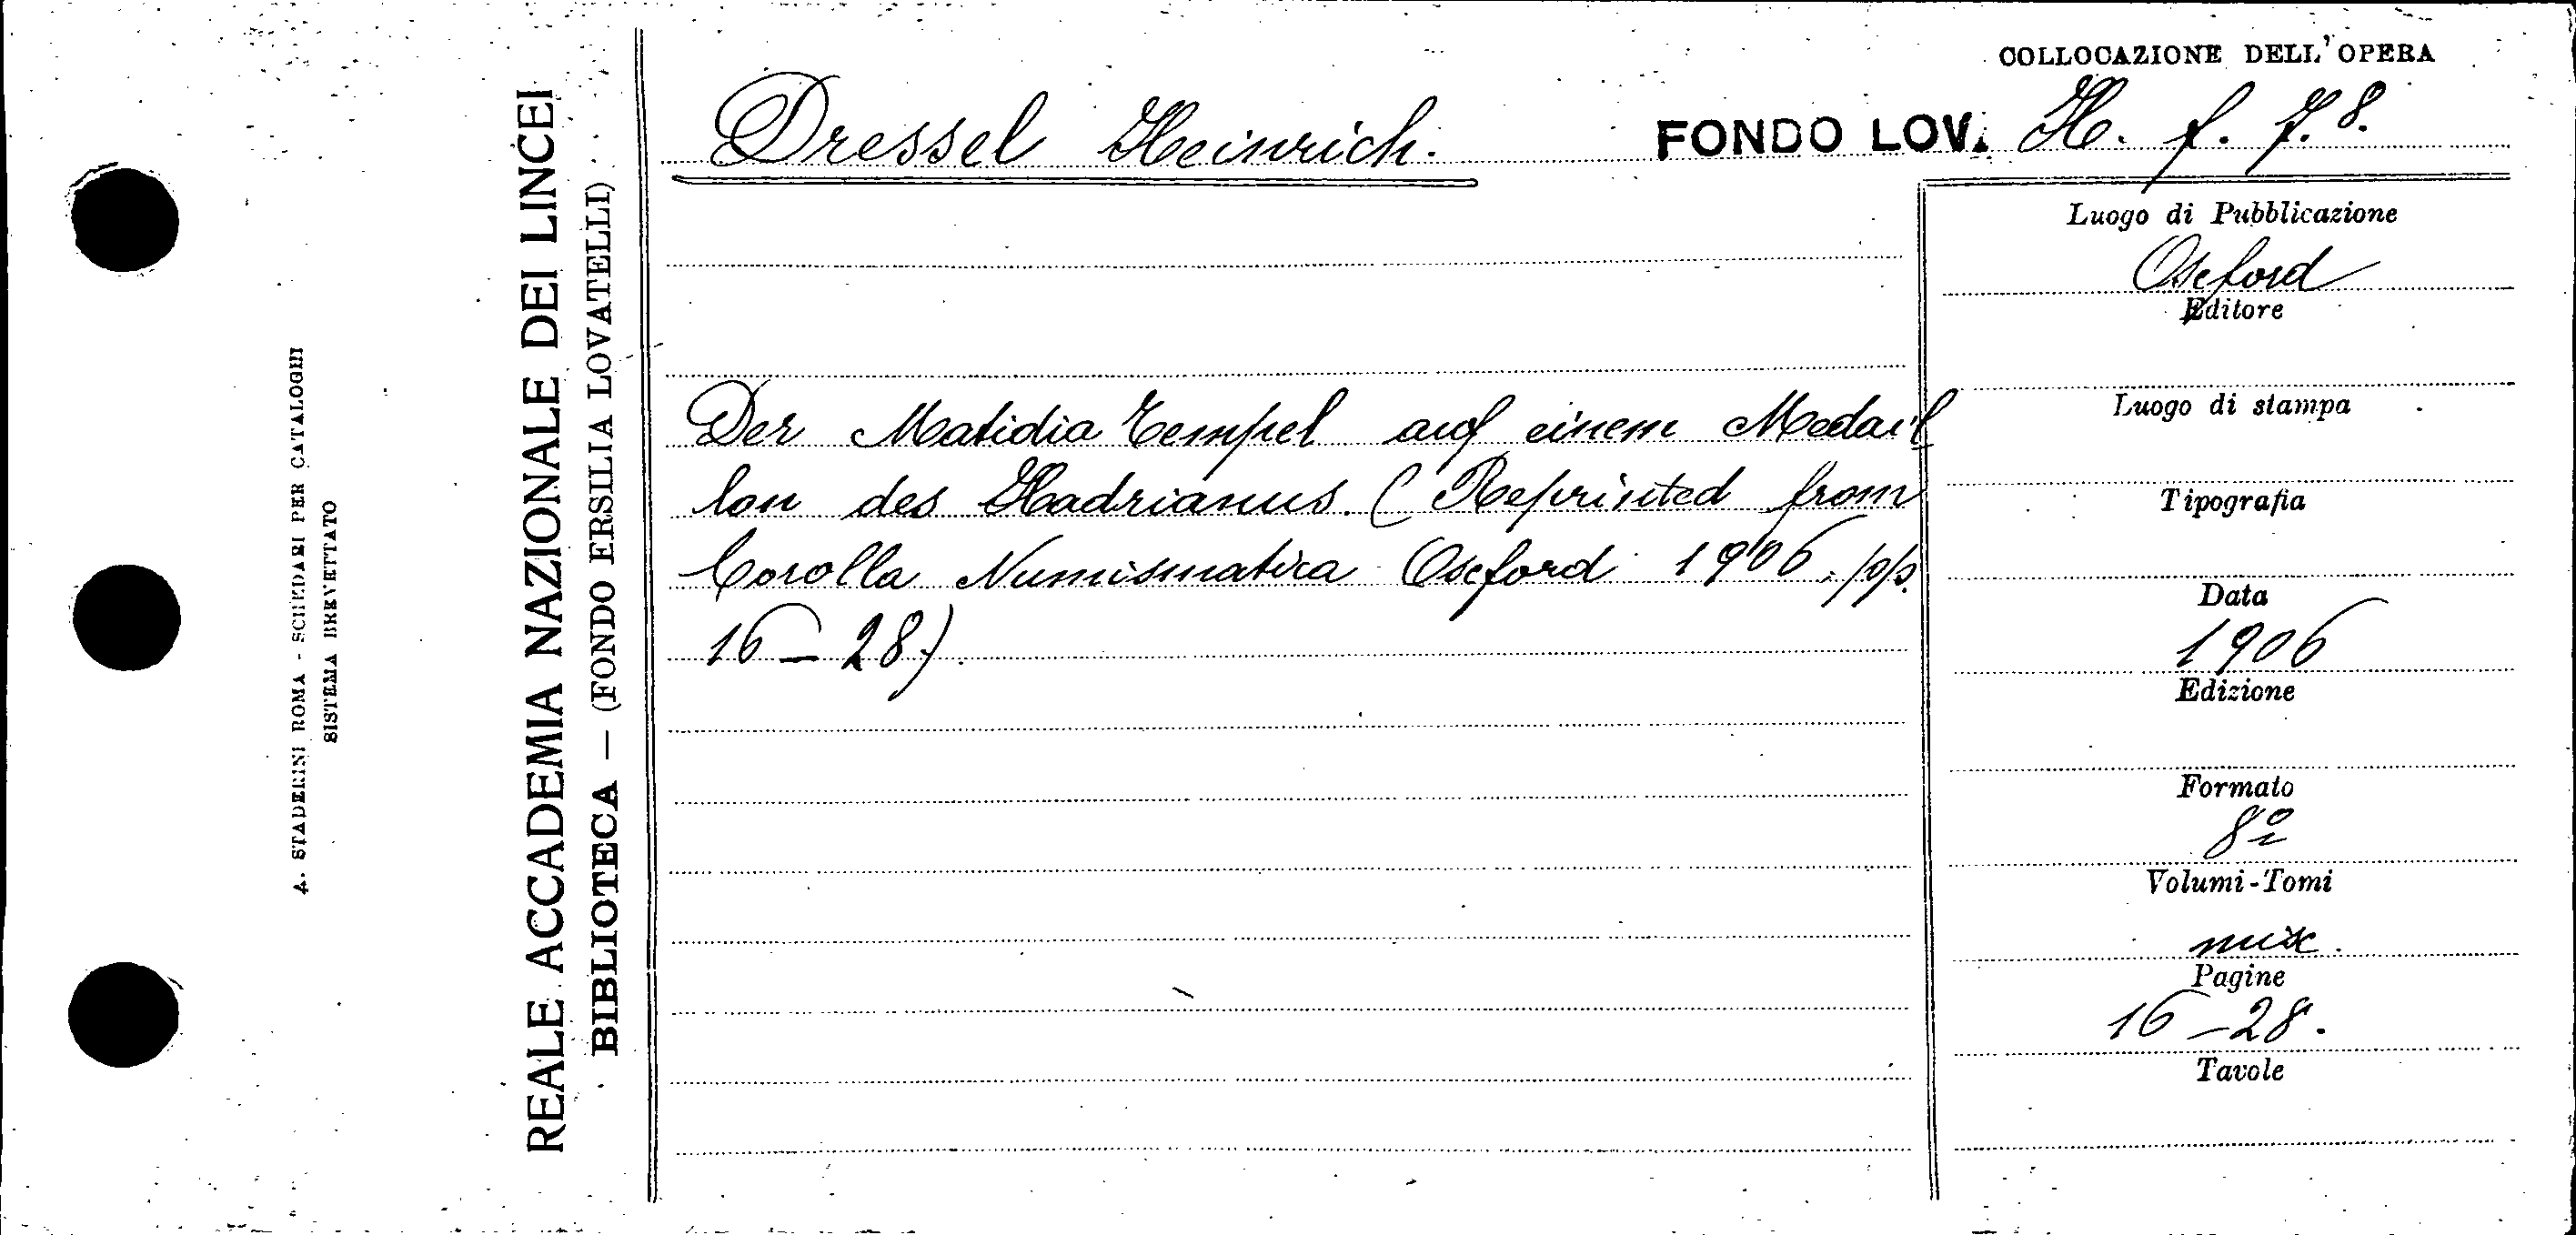 COLLOCAZIONE DELL'OPERA
Dressel Heinrich.
FONDO LOV. H. f. 7. 8.
REALE ACCADEMIA NAZIONALE DEI LINCEI
BIBLIOTECA — (FONDO ERSILIA LOVATELLI)
A. STADERINI ROMA - SCHEDARI PER CATALOGHI
SISTEMA BREVETTATO
Der Matidia Tempel auf einem Medail
lon des Hadrianus. (Reprinted from
Corolla Numismatica Oxford 1906. pp.
16-28).
Luogo di Pubblicazione
Oxford
Editore
Luogo di stampa
Tipografia
Data
1906
Edizione
Formato
8º
Volumi-Tomi
Pagine
16-28.
Tavole